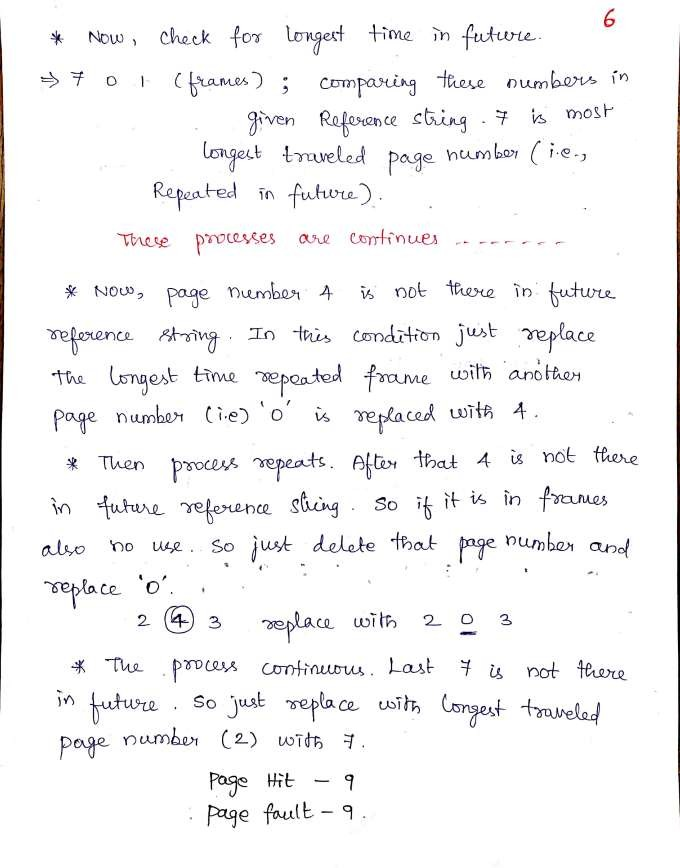 6
* Now, check for longest time in future.
⇒ 7 0 1 (frames) ; comparing these numbers in
given Reference string. 7 is most
longest traveled page number (i.e.,
Repeated in future).
These processes are continues .. - - - - - - -
* Now, page number 4 is not there in future
reference string. In this condition just replace
the longest time repeated frame with another
page number (i.e) '0' is replaced with 4.
* Then process repeats. After that 4 is not there
in future reference string. So if it is in frames
also no use. So just delete that page number and
replace '0'.
2 4 3 replace with 2 0 3
* The process continuous. Last 7 is not there
in future. So just replace with longest traveled
page number (2) with 7.
Page Hit - 9
: page fault - 9.